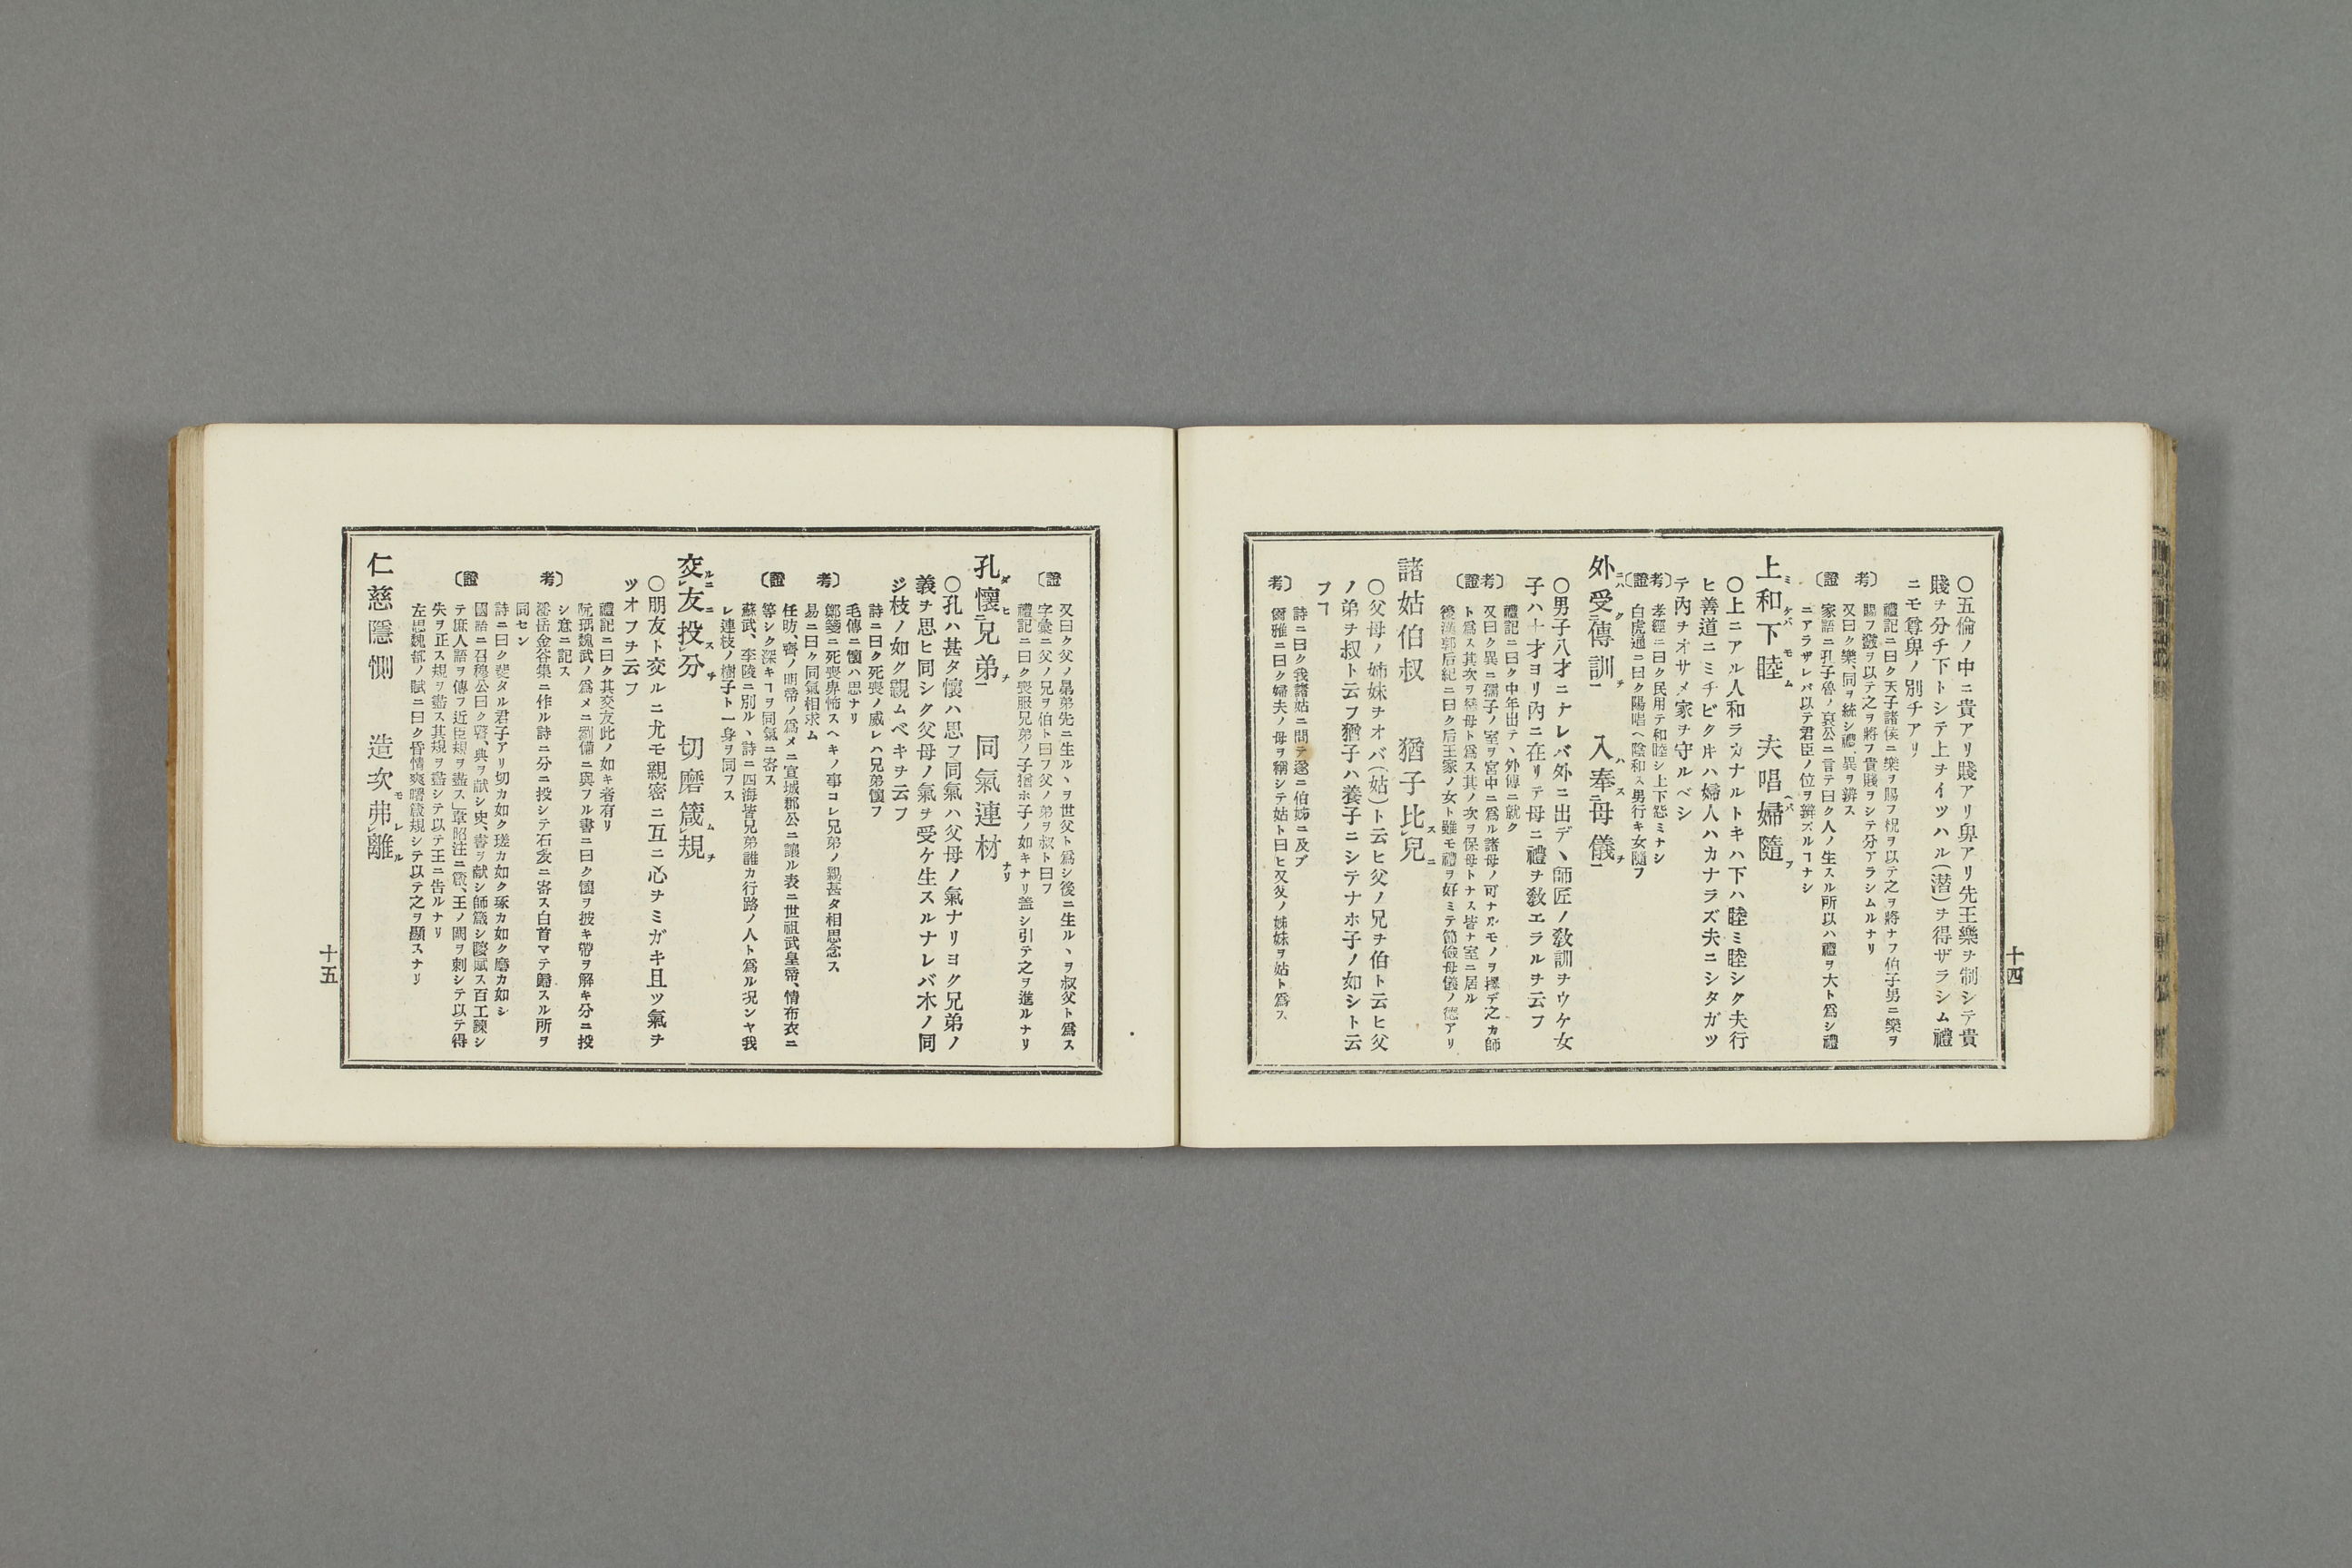 ○五倫ノ中ニ貴アリ賤アリ卑アリ先王樂ヲ制シテ貴
賤ヲ分チ下トシテ上ヲイツハル(潜)ヲ得ザラシム禮
ニモ尊卑ノ別チアリ
〔考證〕
禮記ニ曰ク天子諸侯ニ樂ヲ賜フ柷ヲ以テ之ヲ將ナフ伯子男ニ樂ヲ
賜フ鼗ヲ以テ之ヲ將フ貴賤ヲシテ分アラシムルナリ
又曰ク樂、同ヲ統シ禮、異ヲ辨ス
家語ニ孔子魯ノ哀公ニ言テ曰ク人ノ生スル所以ハ禮ヲ大ト爲シ禮
ニアラザレバ以テ君臣ノ位ヲ辨ズルヿナシ
上和下睦 夫唱婦隨
○上ニアル人和ラカナルトキハ下ハ睦ミ睦シク夫行
ヒ善道ニミチビク片ハ婦人ハカナラズ夫ニシタガツ
テ內ヲオサメ家ヲ守ルベシ
〔考證〕
孝經ニ曰ク民用テ和睦シ上下怨ミナシ
白虎通ニ曰ク陽唱ヘ陰和ス男行キ女隨フ
外受傳訓 入奉母儀
○男子八才ニナレバ外ニ出デヽ師匠ノ敎訓ヲウケ女
子ハ十才ヨリ內ニ在リテ母ニ禮ヲ敎エラルヲ云フ
〔考證〕
禮記ニ曰ク中年出テヽ外傳ニ就ク
又曰ク異ニ孺子ノ室ヲ宮中ニ爲ル諸母ノ可ナルモノヲ擇デ之カ師
ト爲ス其次ヲ慈母ト爲ス其ノ次ヲ保母トナス皆ナ室ニ居ル
後漢郭后紀ニ曰ク后王家ノ女ト雖モ禮ヲ好ミテ節儉母儀ノ德アリ
諸姑伯叔 猶子比兒
○父母ノ姉妹ヲオバ(姑)ト云ヒ父ノ兄ヲ伯ト云ヒ父
ノ弟ヲ叔ト云フ猶子ハ養子ニシテナホ子ノ如シト云
フヿ
〔考證〕
詩ニ曰ク我諸姑ニ問テ遂ニ伯姊ニ及ブ
爾雅ニ曰ク婦夫ノ母ヲ稱シテ姑ト曰ヒ又父ノ姊妹ヲ姑ト爲ス
十四
又曰ク父ノ晜弟先ニ生ルヽヲ世父ト爲シ後ニ生ルヽヲ叔父ト爲ス
字彙ニ父ノ兄ヲ伯ト曰フ父ノ弟ヲ叔ト曰フ
禮記ニ曰ク喪服兄弟ノ子猶ホ子ノ如キナリ蓋シ引テ之ヲ進ルナリ
孔懷兄弟 同氣連材
○孔ハ甚タ懷ハ思フ同氣ハ父母ノ氣ナリヨク兄弟ノ
義ヲ思ヒ同シク父母ノ氣ヲ受ケ生スルナレバ木ノ同
ジ枝ノ如ク親ムベキヲ云フ
〔考證〕
詩ニ曰ク死喪ノ威レハ兄弟懷フ
毛傳ニ懷ハ思ナリ
鄭箋ニ死喪畏怖スヘキノ事コレ兄弟ノ親甚タ相思念ス
易ニ曰ク同氣相求ム
任昉、齊ノ明帝ノ爲メニ宣城郡公ニ讓ル表ニ世祖武皇帝、情布衣ニ
等シク深キヿヲ同氣ニ寄ス
蘇武、李陵ニ別ルヽ詩ニ四海皆兄弟誰カ行路ノ人ト爲ル况ンヤ我
レ連枝ノ樹子ト一身ヲ同フス
交友投分 切磨箴規
○朋友ト交ルニ尤モ親密ニ互ニ心ヲミガキ且ツ氣ヲ
ツオフヲ云フ
〔考證〕
禮記ニ曰ク其交友此ノ如キ者有リ
阮瑀魏武ノ爲メニ劉備ニ與フル書ニ曰ク懷ヲ披キ帶ヲ解キ分ニ投
シ意ニ記ス
潘岳金谷集ニ作ル詩ニ分ニ投シテ石友ニ寄ス白首マテ歸スル所ヲ
同セン
詩ニ曰ク斐タル君子アリ切カ如ク瑳カ如ク琢カ如ク磨カ如シ
國語ニ召穆公曰ク瞽、典ヲ献シ史、書ヲ献シ師箴シ瞍賦ス百工諫シ
テ庶人語ヲ傳フ近臣規ヲ盡ス」韋昭注ニ箴、王ノ闕ヲ刺シテ以テ得
失ヲ正ス規ヲ盡ス其規ヲ盡シテ以テ王ニ告ルナリ
左思魏都ノ賦ニ曰ク昏情爽曙箴規シテ以テ之ヲ顯スナリ
仁慈隱惻 造次弗離
十五